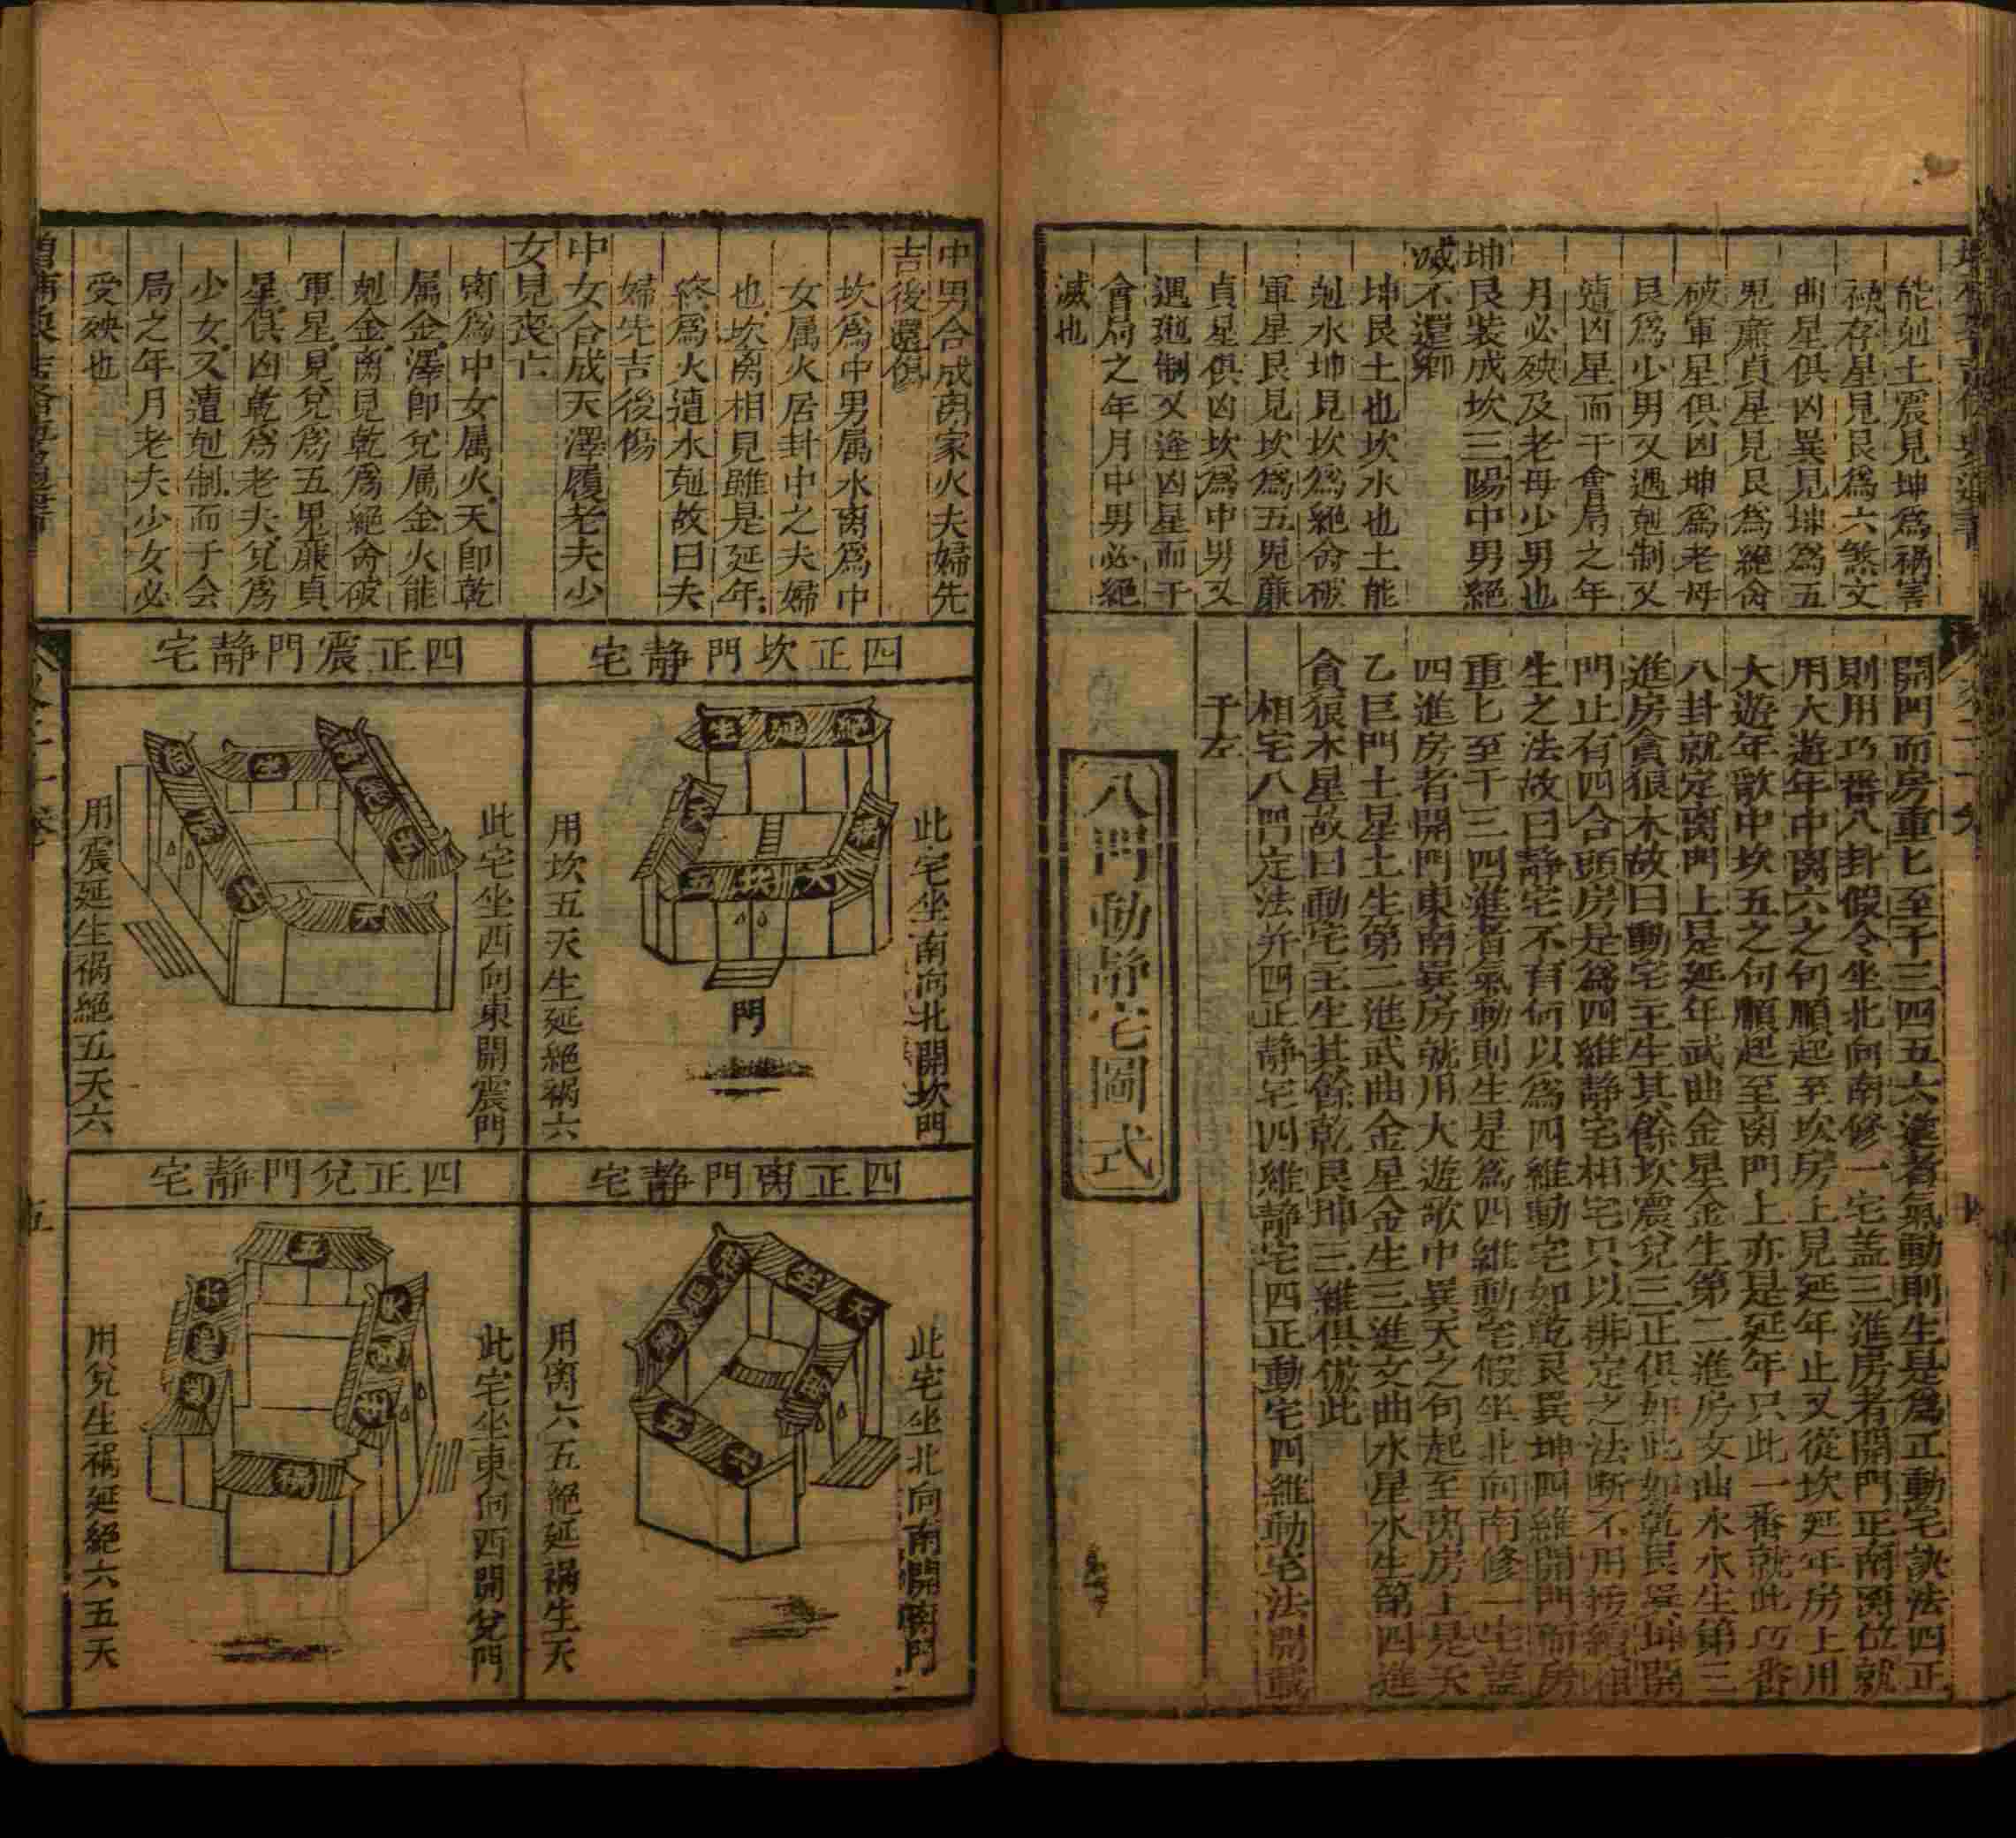 能剋土震見坤爲禍害
祿存星見艮爲六煞文
曲星俱凶巽見坤爲五
鬼廉貞星見艮爲絕命
破軍星俱凶坤爲老母
艮爲少男又遇剋制又
遭凶星而干會局之年
月必殃及老母少男也
坤艮裝成坎三陽中男絕
滅不還鄉
坤艮土也坎水也土能
剋水坤見坎爲絕命破
軍星艮見坎爲五鬼廉
貞星俱凶坎爲中男又
遇剋制又逢凶星而干
會局之年月中男必絕
滅也
開門而房重匕至于三四五六進者氣動則生是爲正動宅訣法四正
則用巧番八卦假令坐北向南修一宅盖三進房者開門正南离位就
用大遊年中离六之句順起至坎房上見延年止又從坎延年房上用
大遊年歌中坎五之句順起至离門上亦是延年只此一番就此巧番
八卦就定离門上是延年武曲金星金生第二進房文曲水水生第三
進房貪狼木故曰動宅主生其餘坎震兌三正俱如此如乾艮巽坤開
門止有四合頭房是爲四維静宅相宅只以排定之法断不用接續相
生之法故曰静宅不有何以爲四維動宅如乾艮巽坤四維開門而房
重匕至于三四進者氣動則生是爲四維動宅假坐北向南修一宅盖
四進房者開門東南巽房就用大遊歌中巽天之句起至离房上是天
乙巨門土星土生第二進武曲金星金生三進文曲水星水生第四進
貪狼木星故曰動宅主生其餘乾艮坤三維俱倣此
相宅八門定法并四正静宅四維静宅四正動宅四維動宅法開載
于左
八門動静宅圖式
中男合成离家火夫婦先
吉後還傷
坎爲中男属水离爲中
女属火居卦中之夫婦
也坎离相見雖是延年
終爲火遭水剋故曰夫
婦先吉後傷
中女合成天澤履老夫少
女見喪亡
离爲中女属火天即乾
属金澤即兌属金火能
剋金离見乾爲絕命破
軍星見兌爲五鬼廉貞
星俱凶乾爲老夫兌爲
少女又遭剋制而于会
局之年月老夫少女必
受殃也
四正坎門静宅
此宅坐南向北開坎門
生延絕
天
禍
五坎六
門
用坎五天生延絕禍六
四正震門静宅
此宅坐西向東開震門
生
六
用震延生禍絕五天六
四正离門静宅
此宅坐北向南開离門
生天
五
用离六五絕延禍生天
四正兌門静宅
此宅坐東向西開兌門
五
禍
用兌生禍延絕六五天